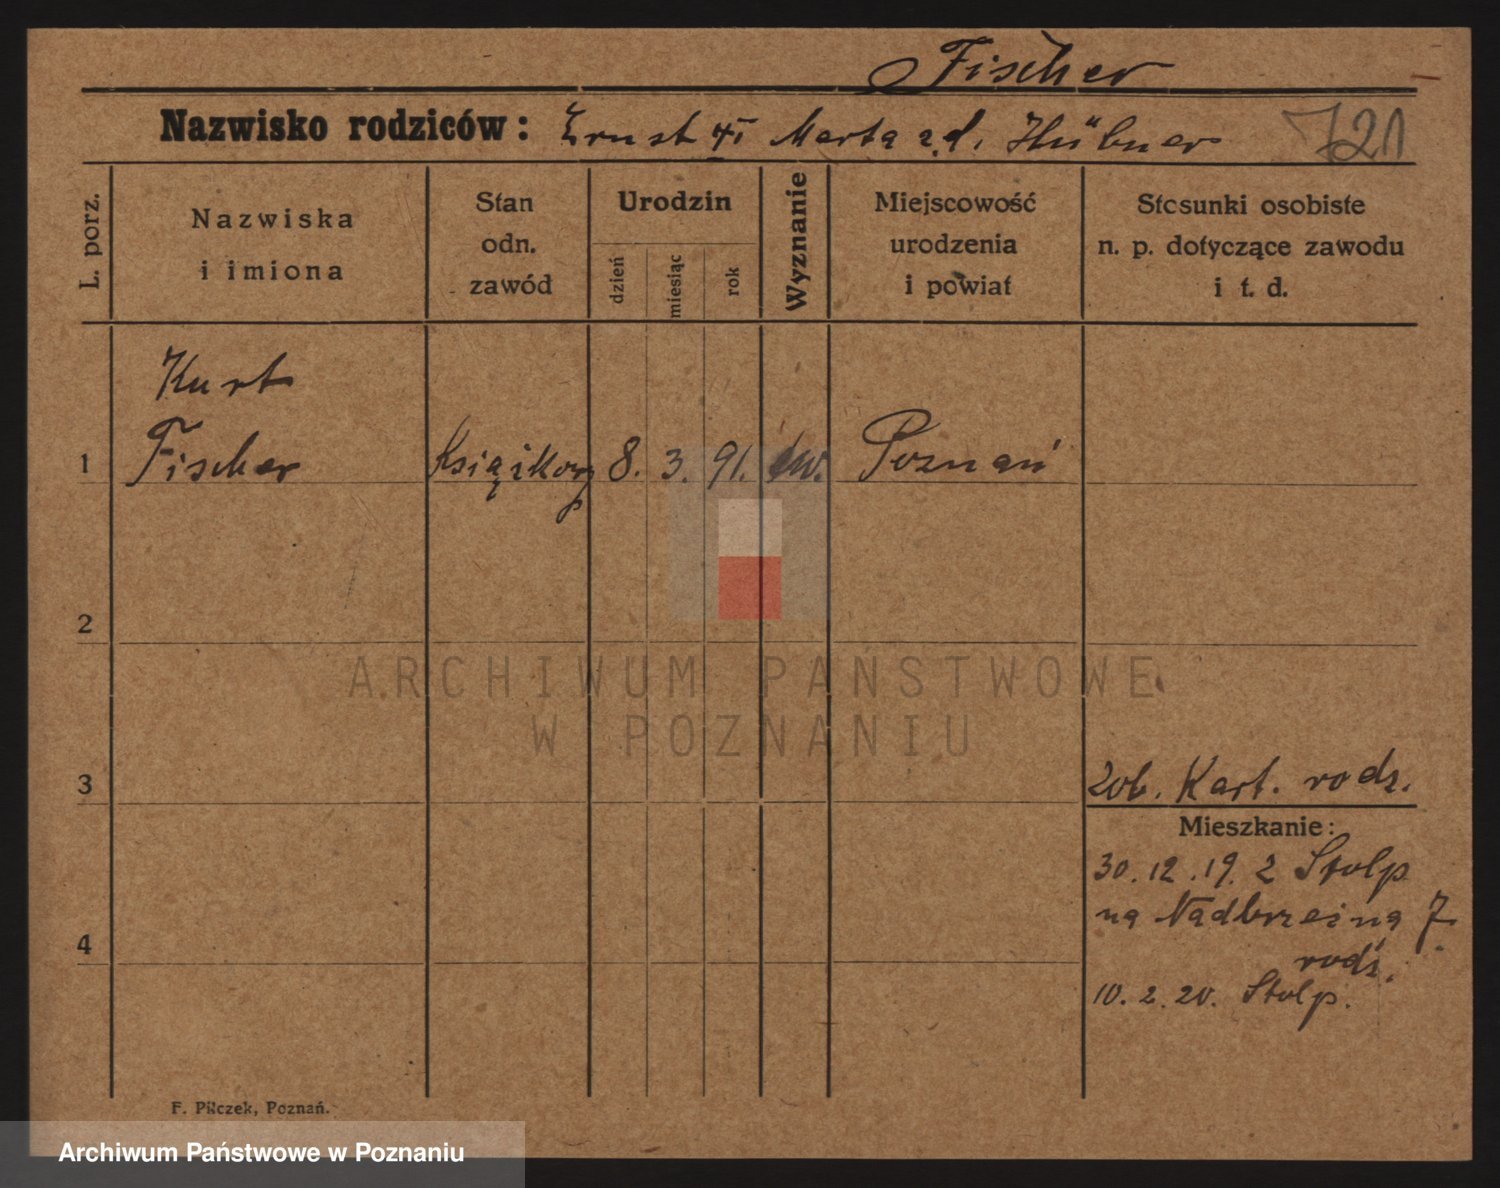 Fischer
Nazwisko rodziców: Ernst Marta z d. Hübner 721
L. porz.
Nazwiska i imiona
Stan odn. zawód
Urodzin
dzień
miesiąc
rok
Wyznanie
Miejscowość urodzenia i powiat
Stosunki osobiste n. p. dotyczące zawodu i t. d.
Kurt
1 Fischer Książkowy 8. 3. 91. ew. Poznań
2
3
Zob. Kart. rodz.
Mieszkanie:
30.12.19. z Stolp
na Nadbrzeżna 7.
4
rodz.
10.2.20. Stolp.
F. Pilczek, Poznań.
ARCHIWUM PAŃSTWOWE
W POZNANIU
Archiwum Państwowe w Poznaniu